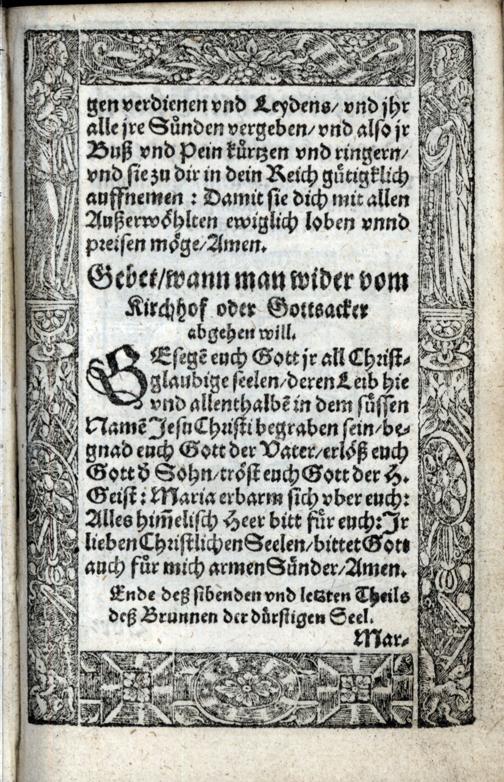 gen verdienen vnd Leydens/ vnd jhr
alle jre Sünden vergeben/ vnd also jr
Buß vnd Pein kürtzen vnd ringern/
vnd sie zu dir in dein Reich gütigklich
auffnemen : Damit sie dich mit allen
Außerwöhlten ewiglich loben vnnd
preisen möge/Amen.
Gebet/wann man wider vom
Kirchhof oder Gottsacker
abgehen will.
GEsegē euch Gott jr all Christ-
glaubige seelen/deren Leib hie
vnd allenthalbē in dem süssen
Namē Jesu Christi begraben sein/be-
gnad euch Gott der Vater/erlöß euch
Gott d̄ Sohn/tröst euch Gott der H.
Geist : Maria erbarm sich vber euch:
Alles him̄elisch Heer bitt für euch: Jr
lieben Christlichen Seelen/bittet Gott
auch für mich armen Sünder/Amen.
Ende deß sibenden vnd letzten Theils
deß Brunnen der dürstigen Seel.
Mar-